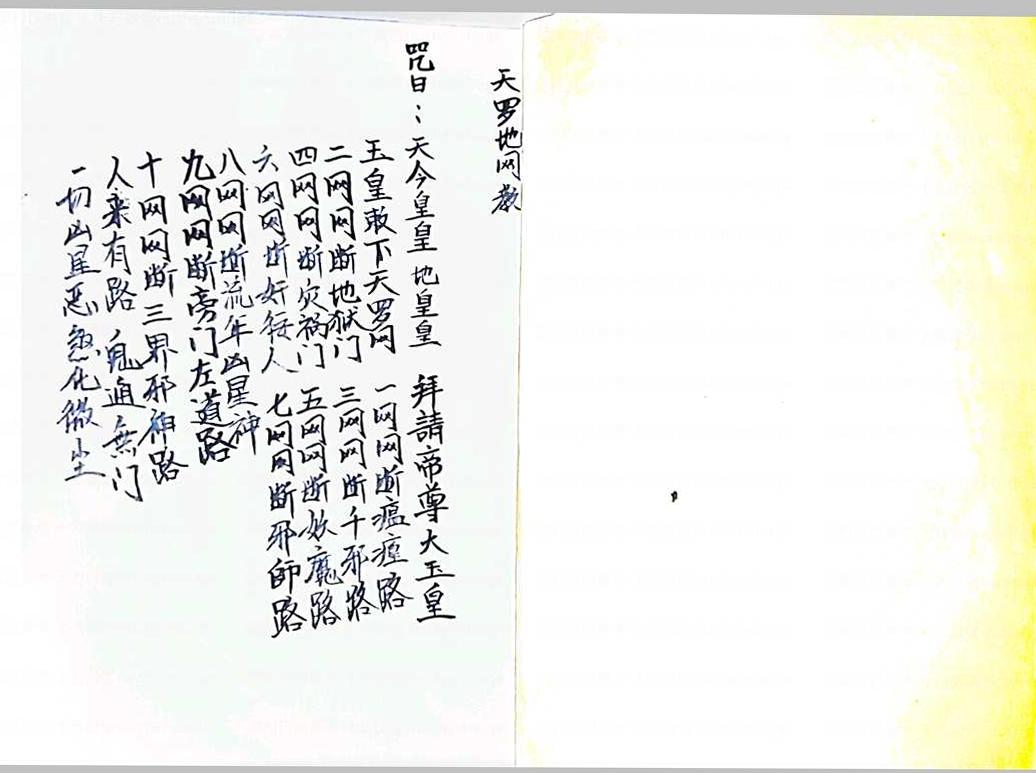 天罗地网教
咒曰：天今皇皇 地皇皇 拜請帝尊大玉皇
玉皇敕下天罗网 一网网断瘟㾮路
二网网断地狱门 三网网断千邪路
四网网断灾祸门 五网网断妖魔路
六网网断奸狡人 七网网断邪師路
八网网断流年凶星神
九网网断旁门左道路
十网网断三界邪神路
人来有路 鬼通無门
一切凶星恶煞化微尘